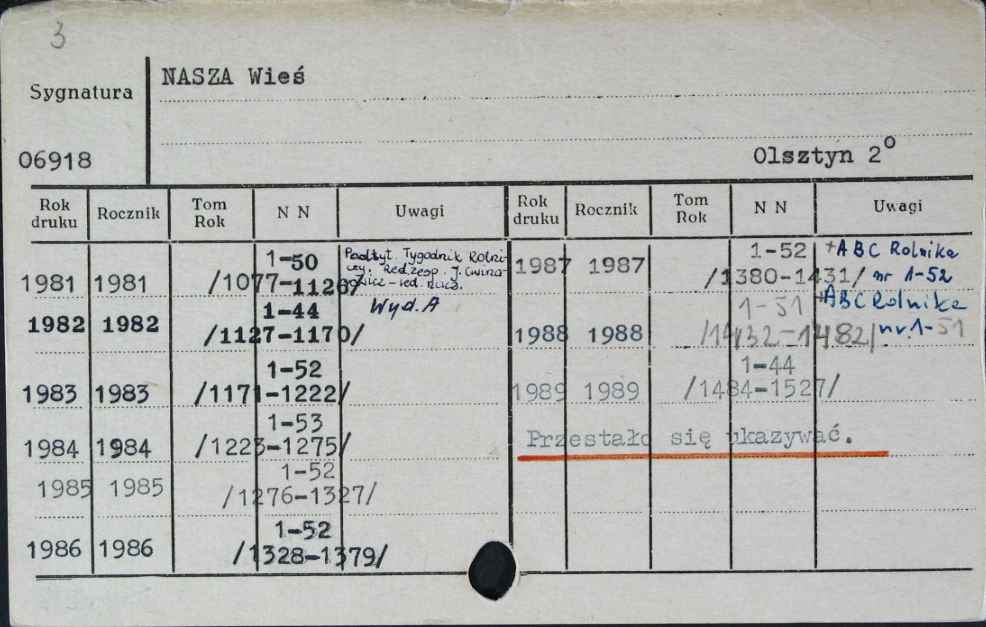 3
NASZA Wieś
Sygnatura
06918
Olsztyn 2°
Rok druku Rocznik Tom Rok N N Uwagi
1981 1981 1-50 /1077-1126/ Podtyt. Tygodnik Rolni-
czy. Red. zesp. J.
-red. nacz.
1982 1982 1-44 /1127-1170/ Wyd. A
1983 1983 1-52 /1171-1222/
1984 1984 1-53 /1223-1275/
1985 1985 1-52 /1276-1327/
1986 1986 1-52 /1328-1379/
Rok druku Rocznik Tom Rok N N Uwagi
1987 1987 1-52 /1380-1431/ +ABC Rolnika
nr 1-52
1988 1988 1-51 /1432-1482/ +ABC Rolnika
nr 1-51
1989 1989 1-44 /1484-1527/
Przestało się ukazywać.